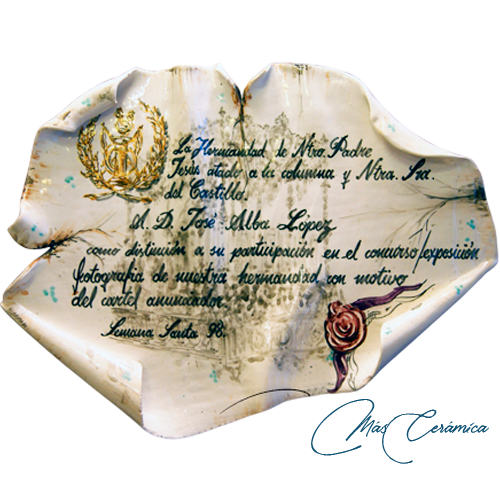 La Hermandad de Ntro. Padre
Jesús atado a la columna y Ntra. Sra.
del Castillo.
A D. José Alba López
como distinción a su participación en el concurso/exposición
fotografía de nuestra hermandad con motivo
del cartel anunciador.
Semana Santa 98.
Más Cerámica